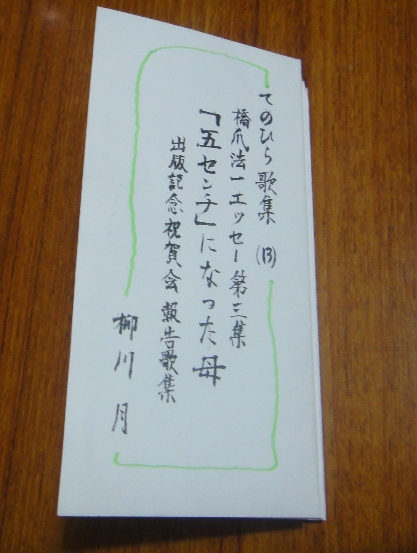 てのひら歌集 (13)
橋爪法一エッセー第三集
「五センチ」になった母
出版記念祝賀会 報告歌集
柳川 月